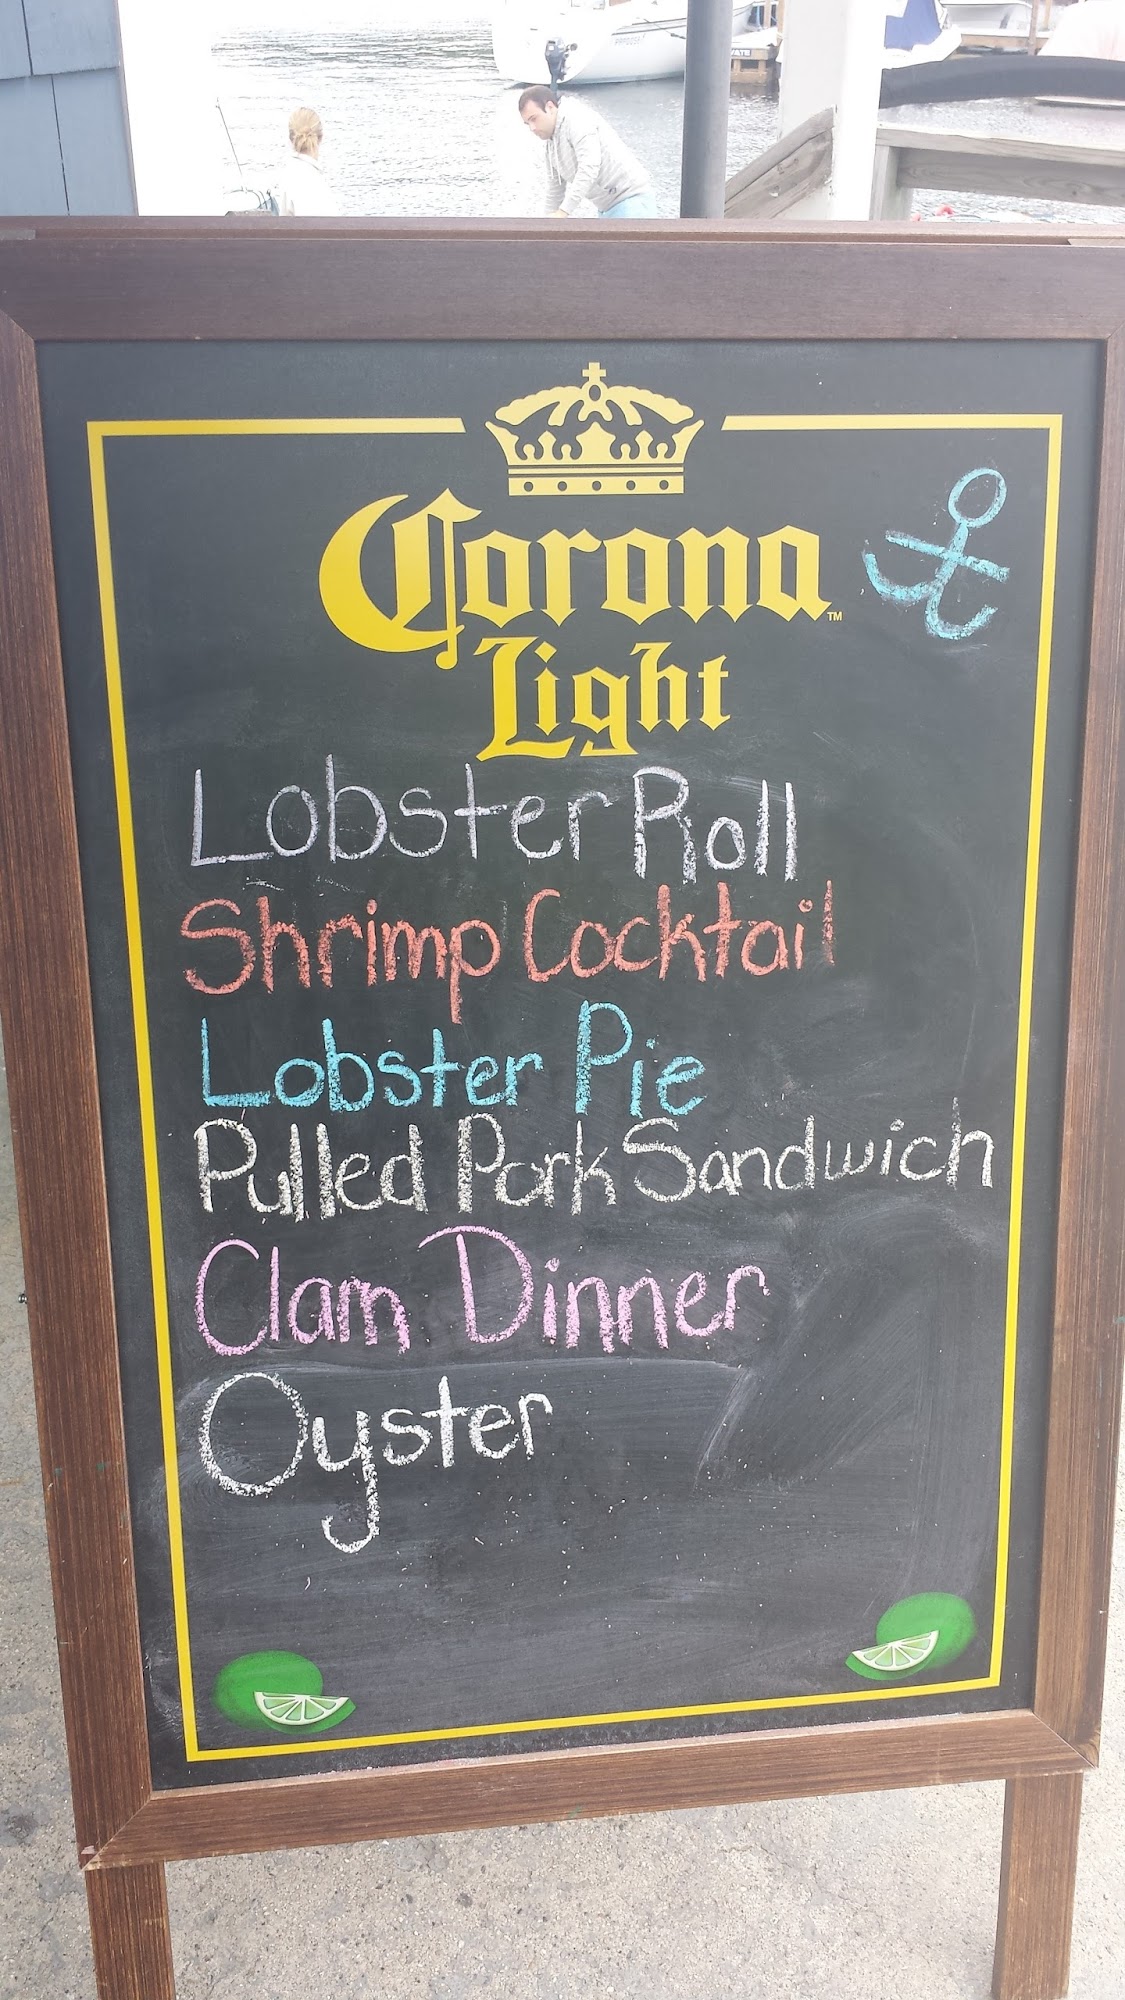 Corona
Light
™
Lobster Roll
Shrimp Cocktail
Lobster Pie
Pulled Pork Sandwich
Clam Dinner
Oyster